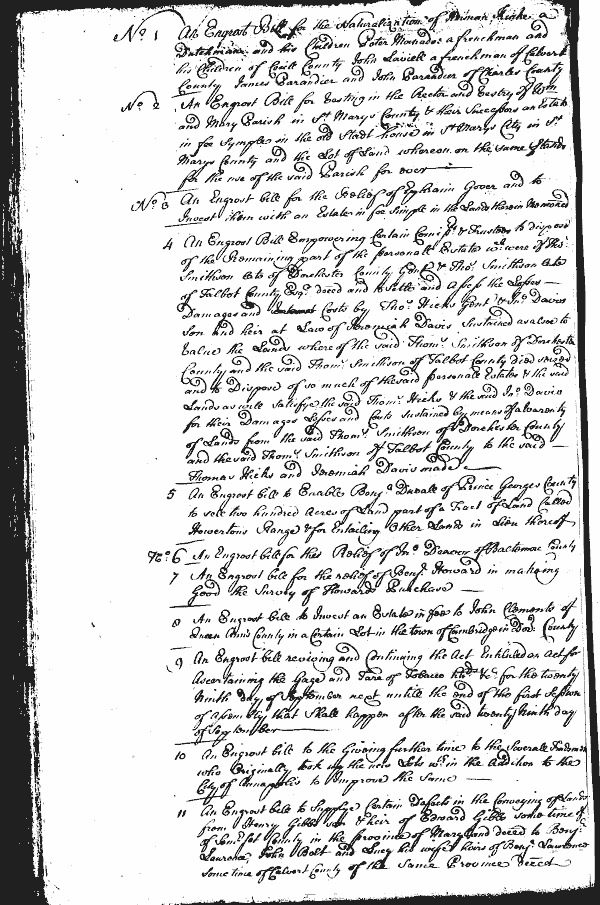 No 1 An Engrost Bill for the Naturalization of Herman a
Dutchman and his Children Peter a frenchman and
his Children of Cecill County John a frenchman of Calvert
County James and John of Charles County
No 2 An Engrost Bill for Vesting in the Rector and Vestry of Wm
and Mary Parish in St Marys County & their Successors an Estate
in fee Symple in the old Stadt house in St Marys City in St
Marys County and the Lot of Land whereon the same Stands
for the use of the said Parish for ever
No 3 An Engrost bill for the Relief of Ephraim Gover and to
Invest them with an Estate in fee Simple in the Lands therein
4 An Engrost Bill Empowering Certain Comrs & Trustees to dispose
of the Remaining part of the personall Estate wch were of Tho:
Smithson late of Dorchester County Gent & Tho: Smithson late
of Talbot County Esqr deced and to settle and Assess the Losses
Damages and Costs by Tho: Hicks Gent & Jno Davis
Son and heir at Law of Jeremiah Davis Sustained as also to
Value the Lands where of the said Thoms Smithson of Dorchester
County and the said Thoms Smithson of Talbot County died seized
and to Dispose of so much of the said personall Estates & the said
Lands as will satisfye the said Thoms Hicks & the said Jno Davis
for their Damages Losses and Costs sustained by means of a Warranty
of Lands from the said Thoms Smithson of Dorchester County
and the said Thoms Smithson of Talbot County to the said
Thomas Hicks and Jeremiah Davis made
5 An Engrost bill to Enable Benja Duvale of Prince Georges County
to sell two hundred Acres of Land part of a Tract of Land Called
Howertons Range & for Entailing Other Lands in Lieu thereof
No: 6 An Engrost bill for the Relief of Jno of Baltemore County
7 An Engrost bill for the relief of Benj Howard in making
Good the Survey of Howards Purchase
8 An Engrost bill to Invest an Estate in fee to John Clements of
Queen Ann's County in a Certain Lot in the town of Cambridge in Dor: County
9 An Engrost bill reviving and Continuing the Act Entituled an Act for
Ascertaining the Gage and Tare of Tobacco hhds &c for the twenty
Ninth day of September next untill the end of the first Session
of Assembly that Shall happen after the said twenty Ninth day
of September
10 An Engrost bill to the Giveing further time to the Severall
who Originally took up the new Lots wthin the Addition to the
City of Annapolis to Improve the Same
11 An Engrost bill to Supplye Certain Defects in the Conveying of Lands
from Henry Gibbs son & heir of Edward Gibbs some time of
of County in the province of Maryland deced to Benj:
Laurence, John Bolt and Lucy his wife heirs of Benj: Lawrence
some time of Calvert County of the Same Province deced